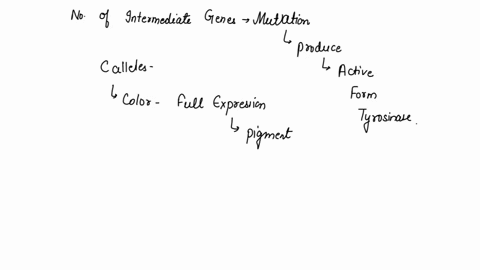 No. of Intermediate Genes → Mutation
↳ produce
Calleles-
↳ Active
↳ Color- Full Expression
Form
Tyrosinase.
↳ pigment